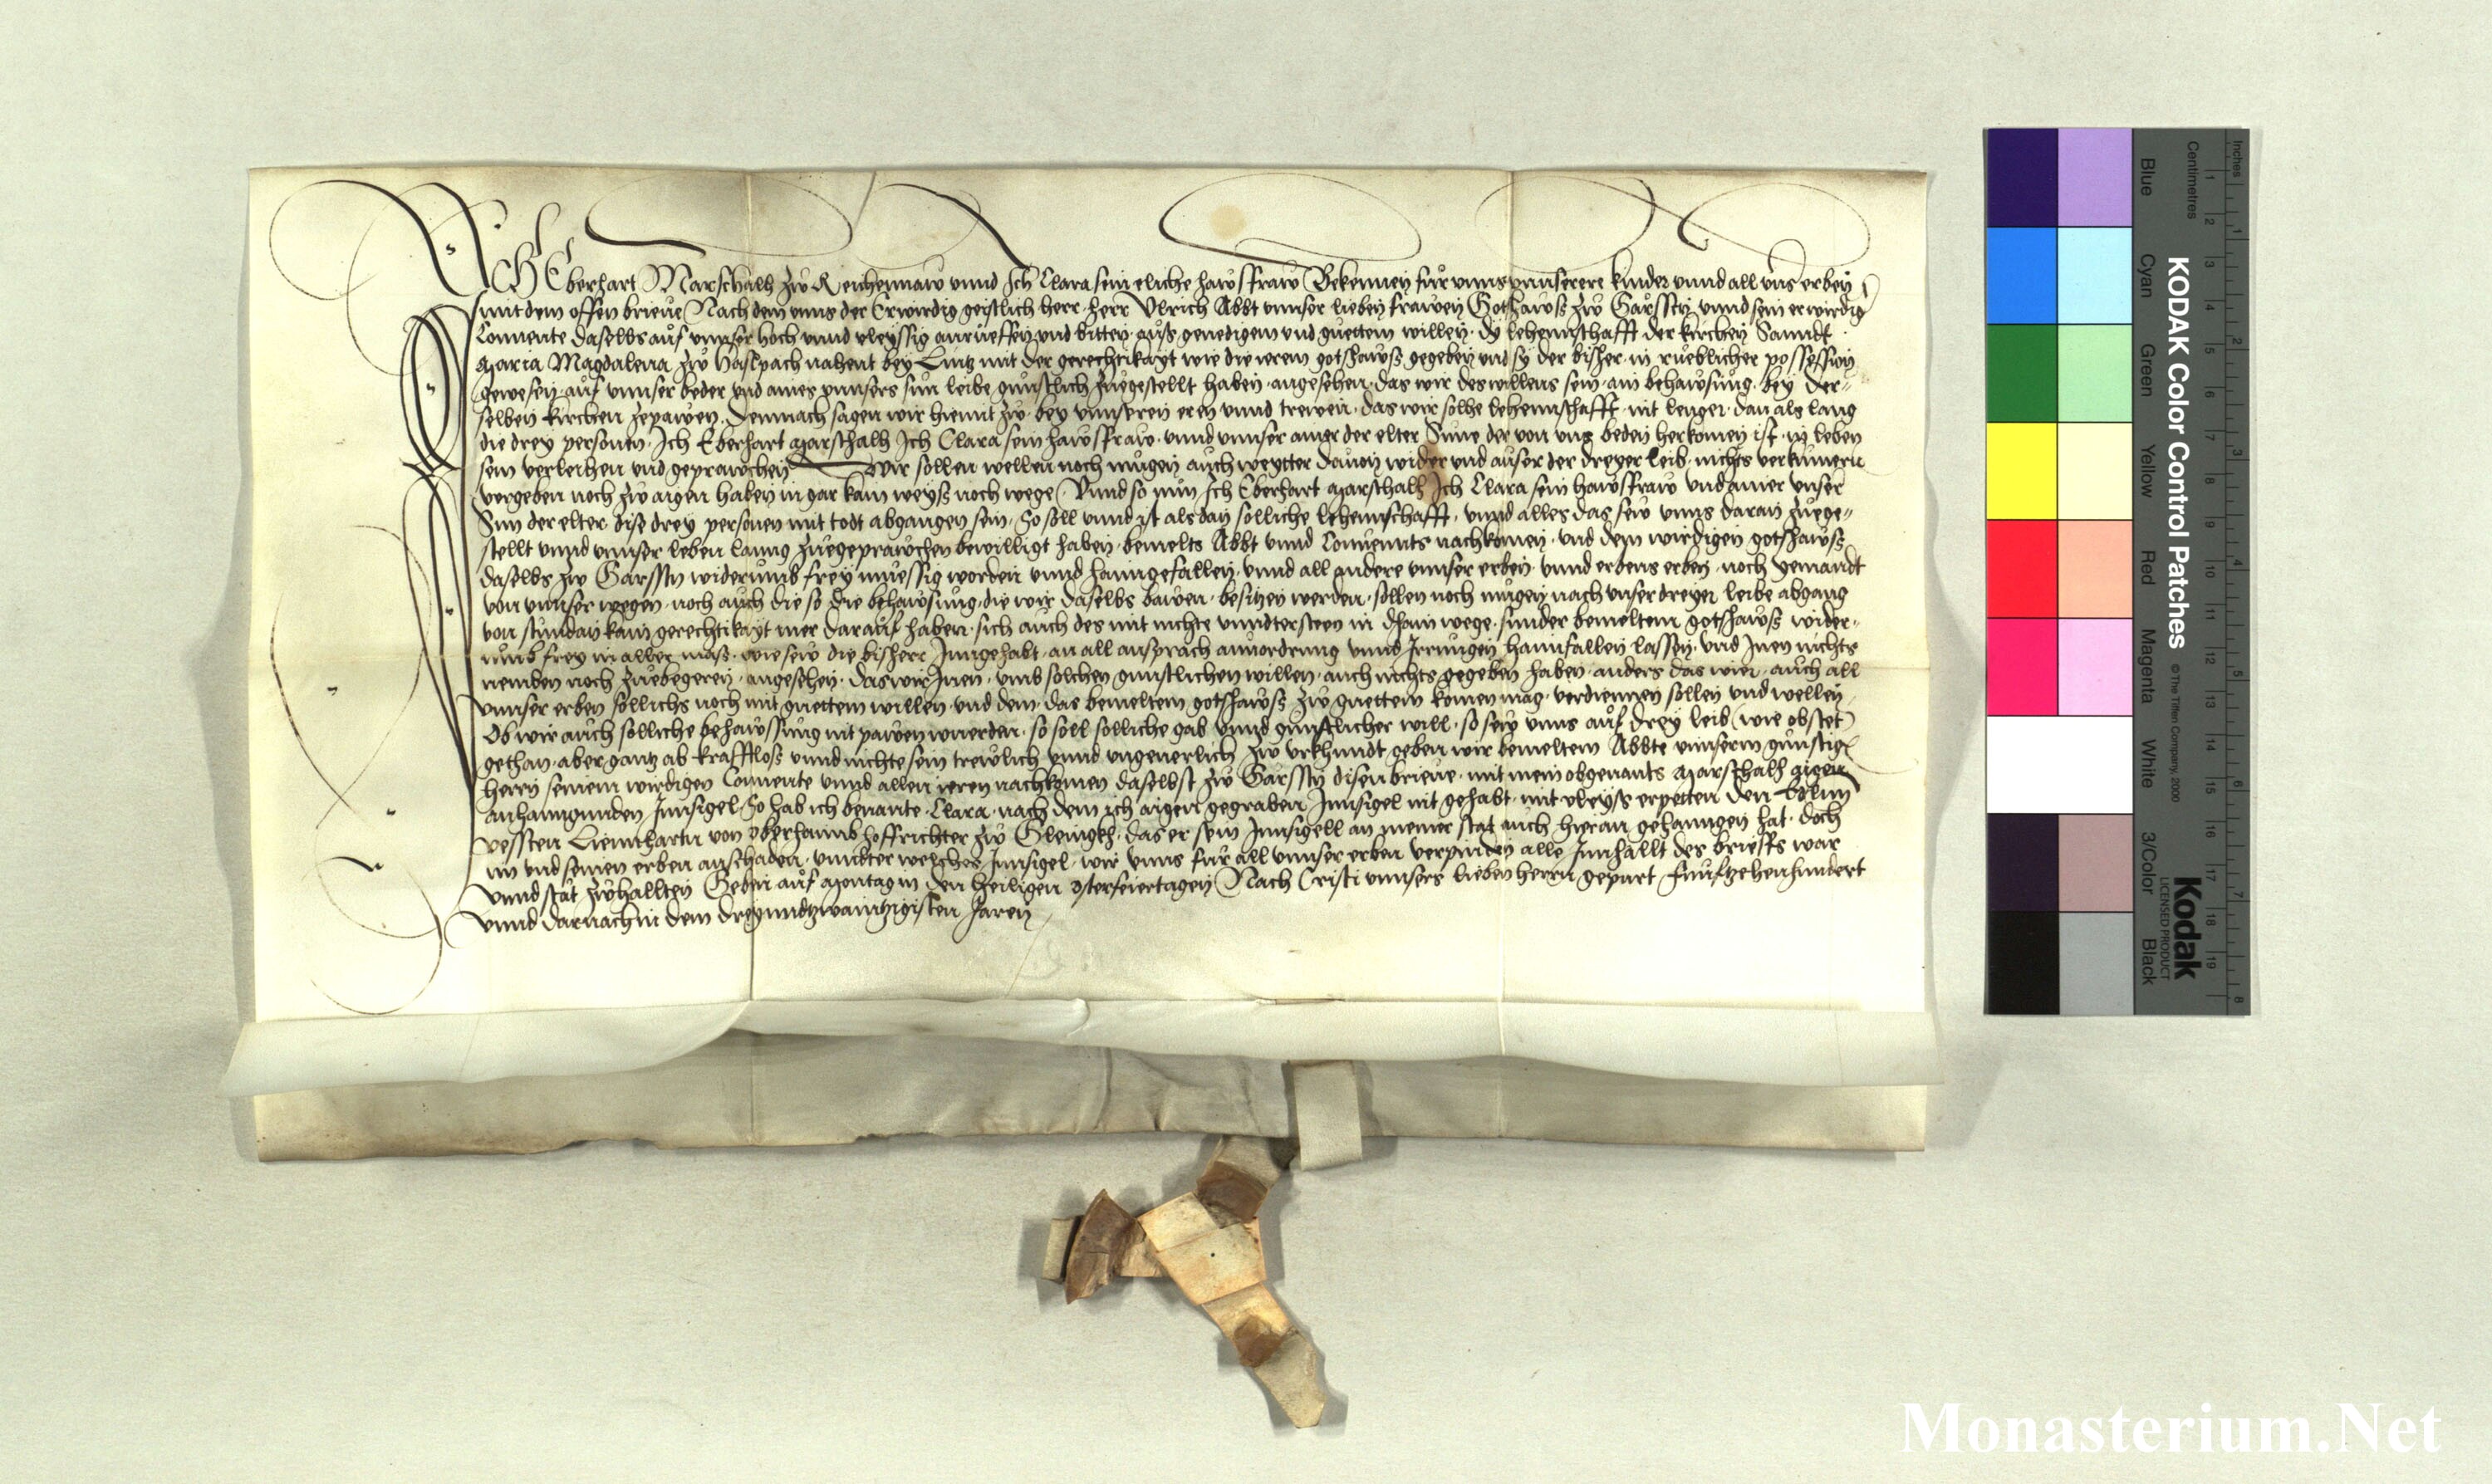 Ich Eberhart Marschalh zw Reichennaw vnnd Ich Clara sein eliche hawsfraw Bekennen für vnns vnnserere kinder vnnd all vns erben
mit dem offen brieue Nach dem vnns der Erwirdig geistlich herr herr Vlrich Abbt vnnser lieben frawen Gotshawss zw Gärssten vnnd sein erwirdig
Conuente daselbs auf vnnser hoch vnnd vleyssig anrueffen vnd bitten aus genedigem vnd guettem willen dy lehennschafft der kirchen Sanndt
Maria Magdalena zw Haslpach nahent bey Lintz mit der gerechtikayt wie die irem gotshawss gegeben vnd sy der bisher in rueblicher possession
gewesen auf vnnser beder vnd aines vnnsers sun leibe gunstlich zuegestellt haben angesehen das wir des willens sein ain behawsung bey der-
selben kirchen zepawen Demnach sagen wir hiemit zw bey vnnseren eren vnnd trewen das wir solhe lehennschafft nit lenger dan als lang
die drey personen Ich Eberhart Marschalh Ich Clara sein hawsfraw vnnd vnnser ainer der elter Sune der von vns beden herkomen ist in leben
sein verleihen vnd geprawchen Wir sollen wellen noch mugen auch weytter dauon wider vnd auser der dreyer leib nichts verkumern
vergeben noch zw aigen haben in gar kain weyss noch wege Vnnd so nun Ich Eberhart Marschalh Ich Clara sein hawsfraw vnd ainer vnser
Sun der elter dise drey personen mit todt abgangen sein So soll vnnd ist als dan solliche lehennschafft vnnd alles das sew vnns daran zuege-
stellt vnnd vnnser leben lanng zuegeprawchen bewilligt haben bemelts Abbt vnnd Conuennts nachkomen vnd dem wirdigen gotshawss
daselbs zw Garssten widerumb frey muessig worden vnnd haimgefallen vnnd all andere vnnser erben vnnd erbens erben noch yemandt
von vnnser wegen noch auch die so die behawsung die wir daselbs bawen besitzen werden sollen noch mugen nach vnser dreyer leibe abgang
von stundan kain gerechtikayt mer darauf haben sich auch des mit nichte vnndtersteen in dhain wege sunder bemeltem gotshawss wider-
umb frey in aller mass wie sew die bisherr Inngehabt an all ansprach anuordrung vnnd Irrungen haimfallen lassen vnd Inen nichts
nemben noch zuebegeren angesehen das wir Inen vmb solchen gunstlichen willen auch nichts gegeben haben anders das wier auch all
vnnser erben sollichs noch mit guettem willen vnd dem das bemeltem gotshawss zw guettem komen mag verdiennen sollen vnd wellen
Ob wir auch solliche behawssung nit pawen wuerden so soll solliche gab vnnd gunstlicher will so sew vnns auf drey leib (wie obstet)
gethan aber gantz ab krafftloss vnnd nichte sein trewlich vnnd vngeuerlich Zw vrkhundt geben wir bemeltem Abbte vnnserm gunstigen
herrn seinem wirdigen Conuente vnnd allen ieren nachkomen daselbst zw Gärssten disen brieue mit mein obgenants Marschalh aigen
anhanngunden Innsigel So hab ich benante Clara nach dem ich aigen gegraben Innsigel nit gehabt mit vleyss erpetten den Edlnn
vessten Liennhartn von Oberhaimb hoffrichter zw Gleingkh das er sein Innsigell an meiner stat auch hieran gehanngen hat doch
im vnd seinen erben anschaden vnndter welches Innsigel wir vnns für all vnnser erben verpinden alle Innhallt des brieffs war
vnnd stät zwhallten Geben auf Montag in den heiligen Osterfeiertagen Nach Cristi vnnsers lieben herrn gepurt Funfftzehenhundert
vnnd darnach in dem dreyundtzwaintzigisten Jaren
KODAK Color Control Patches
© The Tiffen Company, 2000
Kodak
LICENSED PRODUCT
Blue Cyan Green Yellow Red Magenta White 3/Color Black
Inches
Centimetres
1 2 3 4 5 6 7 8 9 10 11 12 13 14 15 16 17 18 19
1 2 3 4 5 6 7 8
Monasterium.Net